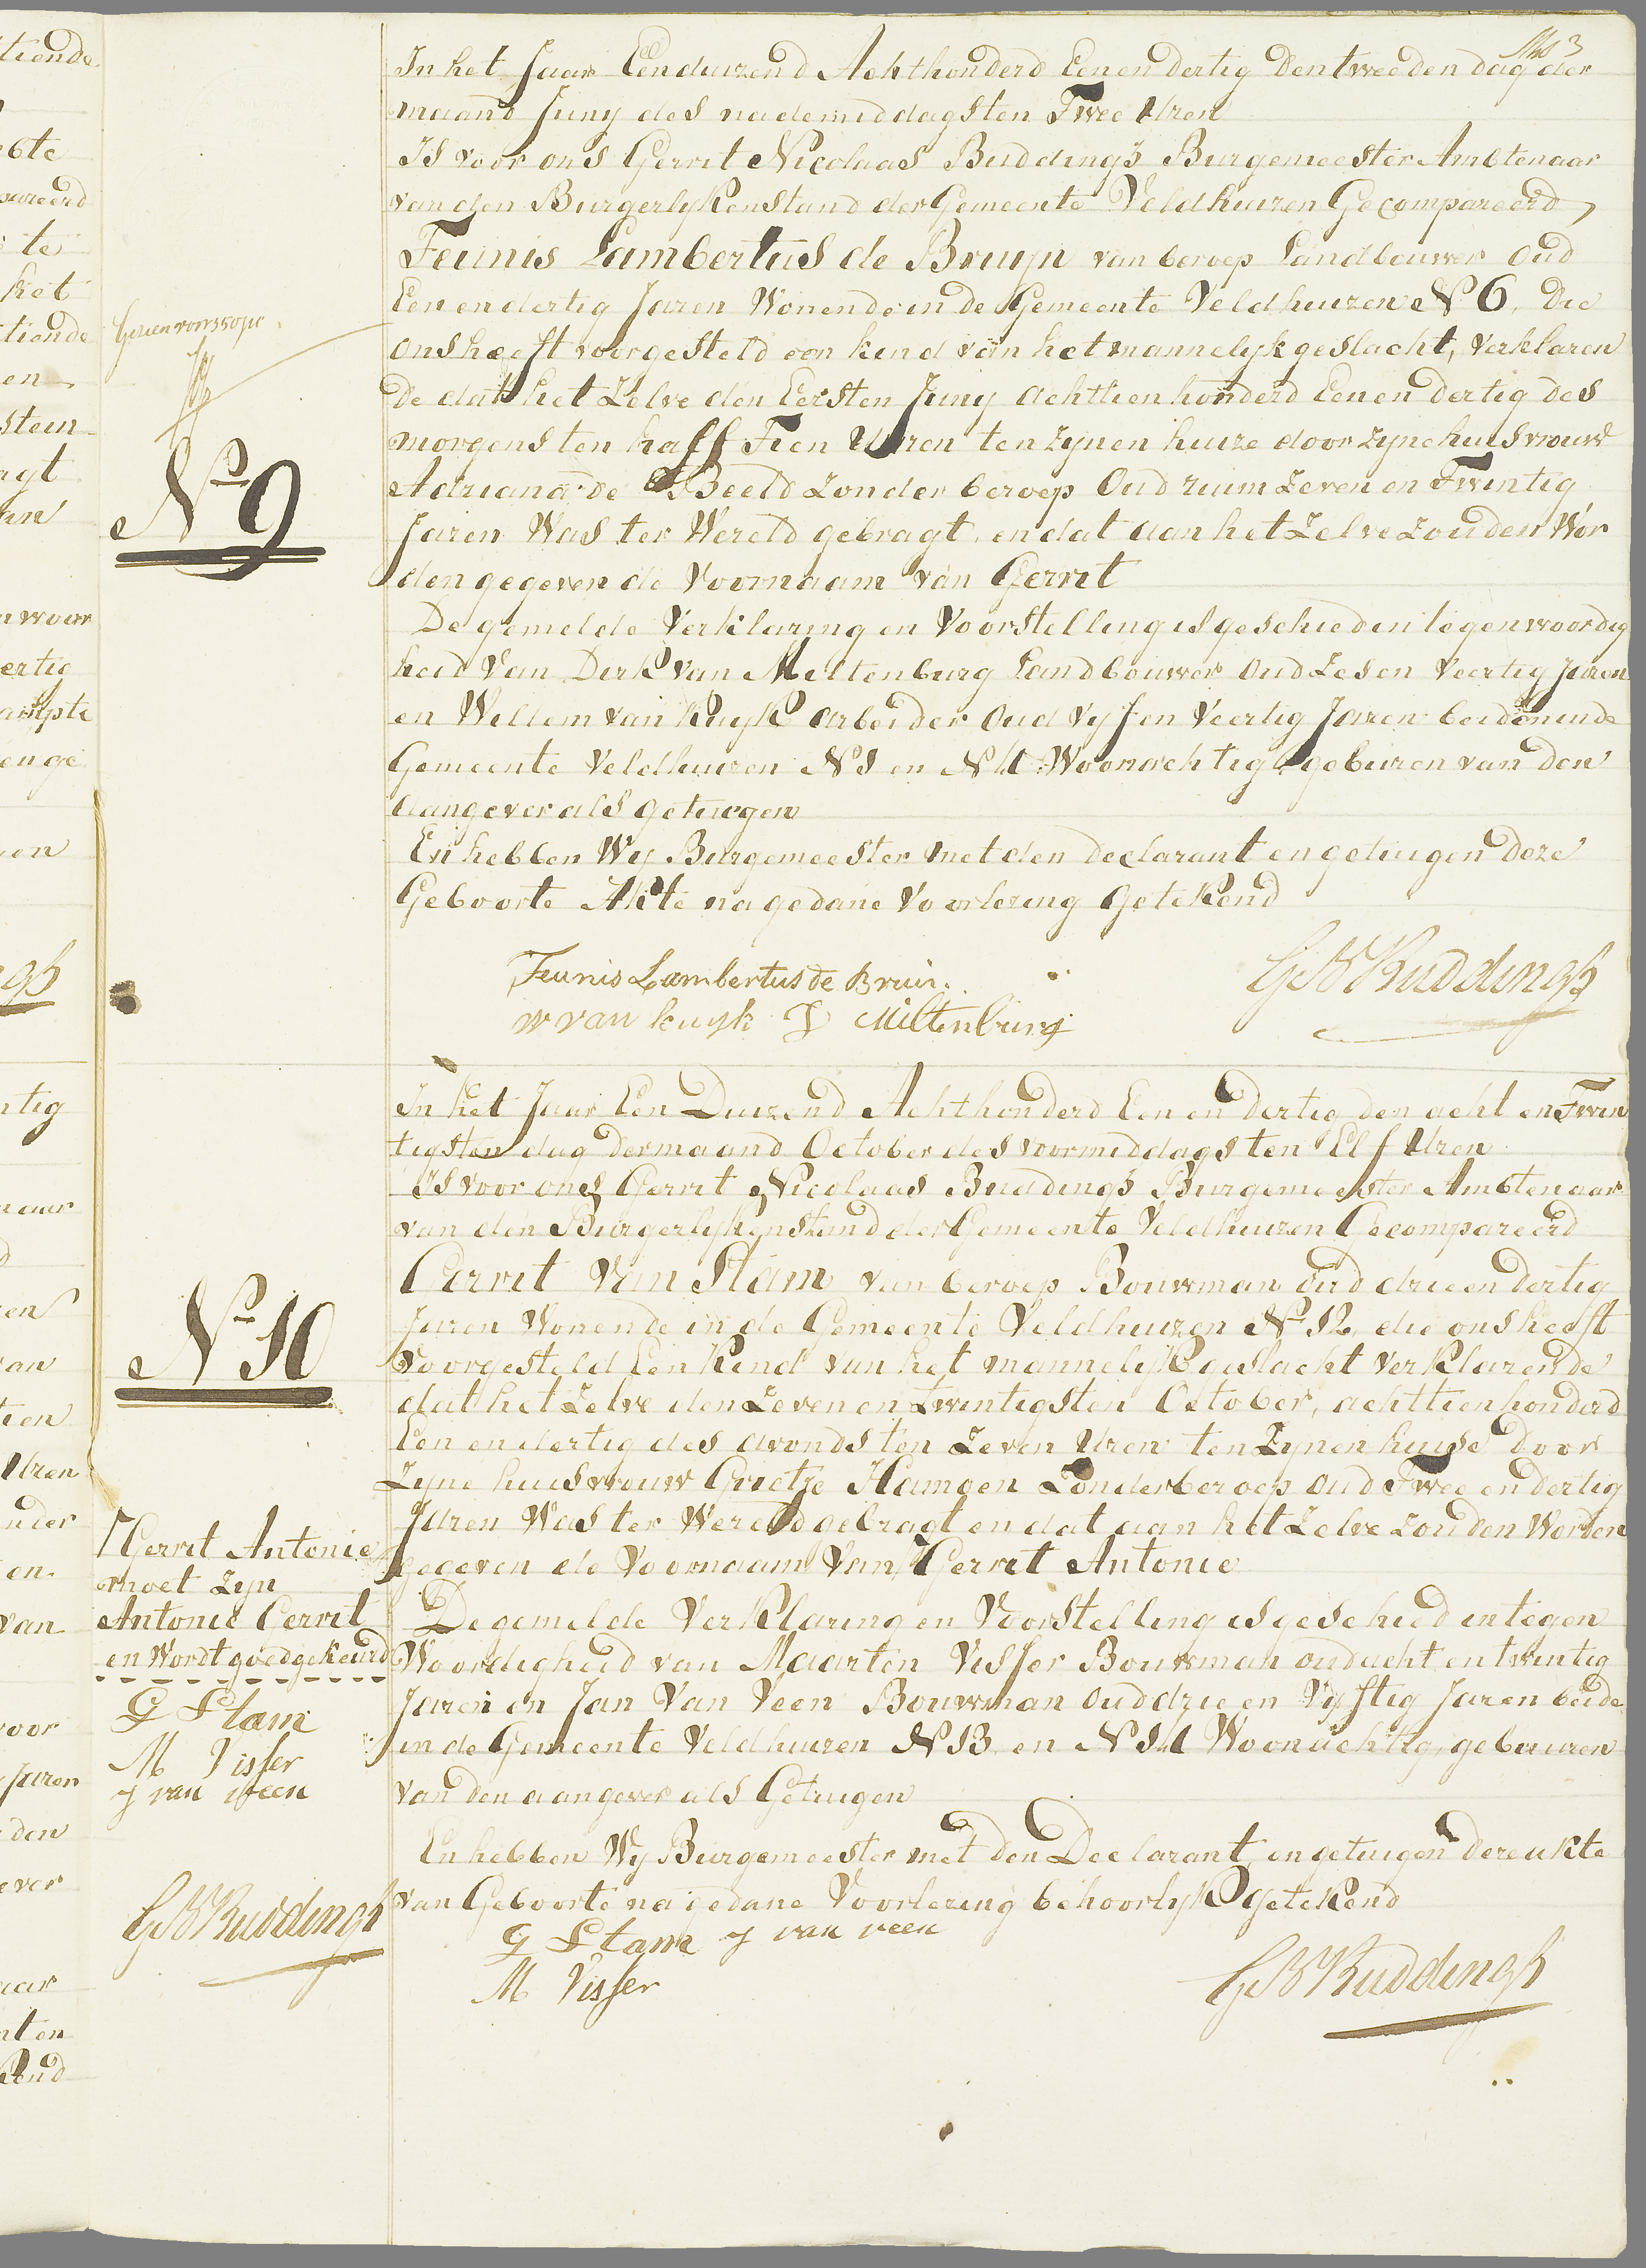 In het Jaar Eenduizend Achthonderd Een en dertig Den tweeden dag der
maand Juny des nademiddags ten Twee Uren
Is voor ons Gerrit Nicolaas Buddingh Burgemeester Ambtenaar
van den Burgerlyken Stand der Gemeente Veldhuizen Gecompareerd,
Teunis Lambertus de Bruyn van beroep Landbouwer oud
Een en dertig Jaren Wonende in de Gemeente Veldhuizen No 6, Die
ons heeft voorgesteld een kind van het mannelyk geslacht, Verklaren
de dat het Zelve den Eersten Juny achttienhonderd Een en dertig des
morgens ten half Tien Uren ten Zynen huize door zyne huisvrouw
Adriana de Beeld Zonder beroep Oud ruim Zeven en Twintig
Jaren Was ter Wereld gebragt, en dat aan het Zelve Zouden Wor
den gegeven de Voornaam van Gerrit
De gemelde Verklaring en Voorstelling is geschied in tegenwoordig
heid Van Dirk van Miltenburg Landbouwer Oud Zes en Veertig Jaren
en Willem van Kuyk arbeider Oud Vyf en Veertig Jaren beide in de
Gemeente Veldhuizen N 1 en N 4 Woonachtig, gebuuren van den
aangever als getuigen
En hebben Wy Burgemeester met den Declarant en getuigen Deze
Geboorte Akte na gedane Voorlezing Getekend
Teunis Lambertus de Bruin.
w van kuyk D Miltenburg
GN Buddingh
No 9
In het Jaar Een Duizend Achthonderd Een en dertig den acht en Twin
tigsten dag Der maand October des voormiddags ten Elf Uren
Is voor ons Gerrit Nicolaas Buddingh Burgemeester Ambtenaar
van den Burgerlyken Stand der Gemeente Veldhuizen Gecompareerd
Gerrit Van Stam van beroep Bouwman oud drie en dertig
Jaren Wonende in de Gemeente Veldhuizen No 12, die ons heeft
Voorgesteld Een Kind van het mannelyk geslacht Verklarende
dat het Zelve den Zeven en twintigsten October, achttienhonderd
Een en dertig des avonds ten Zeven Uren ten Zynen huise Door
Zyne huisvrouw Grietje Hamoen Zonder beroep oud Twee en dertig
Jaren Was ter Wereld gebragt en dat aan het Zelve zouden Worden
gegeven de Voornaam Van Gerrit Antonie
De gemelde Verklaring en Voorstelling is geschied in tegen
Woordigheid van Maarten Visser Bouwman oud acht en twintig
Jaren en Jan Van Veen Bouwman Oud drie en Vyftig Jaren beide
in de Gemeente Veldhuizen N 13 en N 14 Woonachtig, gebuuren
van den aangever als Getuigen
En hebben Wy Burgemeester met den Declarant en getuigen deze akte
van Geboorte na gedane Voorlezing behoorlyk getekend
G Stam J van veen
M Visser
GN Buddingh
No 10
Gerrit Antonie
moet Zyn
Antonie Gerrit
en Wordt goedgekeurd
G Stam
M Visser
J van veen
GN Buddingh